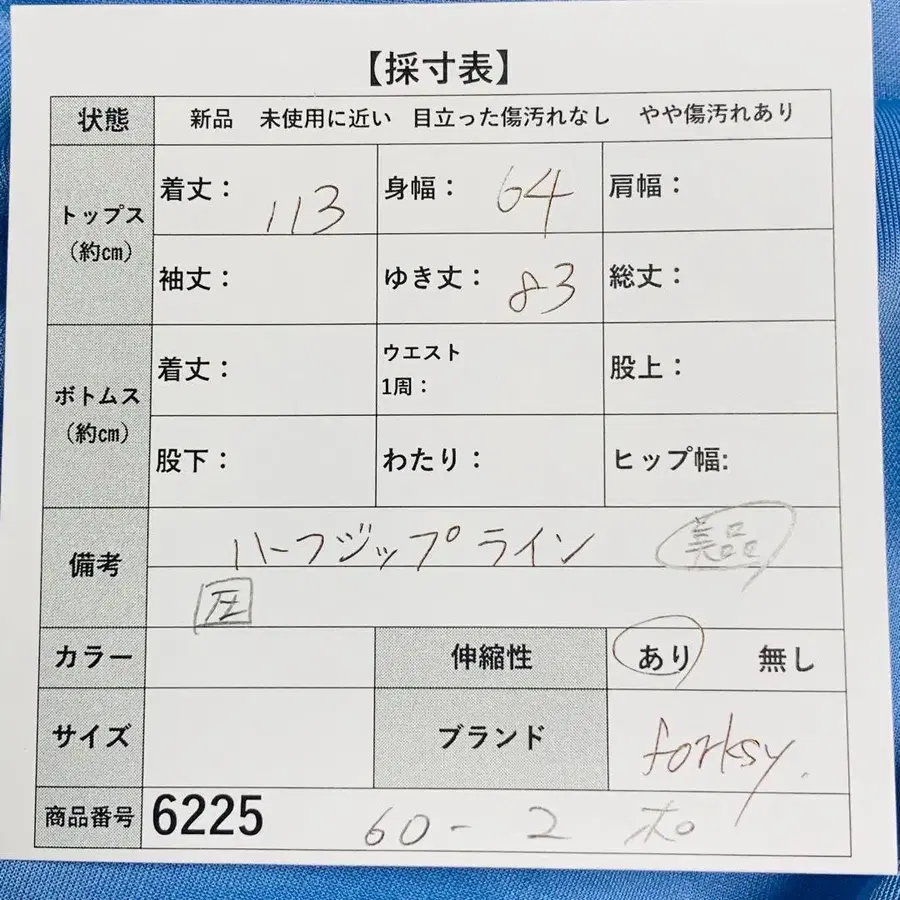 【採寸表】
状態 新品 未使用に近い 目立った傷汚れなし やや傷汚れあり
トップス
(約㎝)
着丈： 113 身幅： 64 肩幅：
袖丈： ゆき丈： 83 総丈：
ボトムス
(約㎝)
着丈： ウエスト
1周： 股上：
股下： わたり： ヒップ幅:
備考 ハーフジップライン 美品
圧
カラー 伸縮性 あり 無し
サイズ ブランド forksy.
商品番号 6225 60-2 ホ